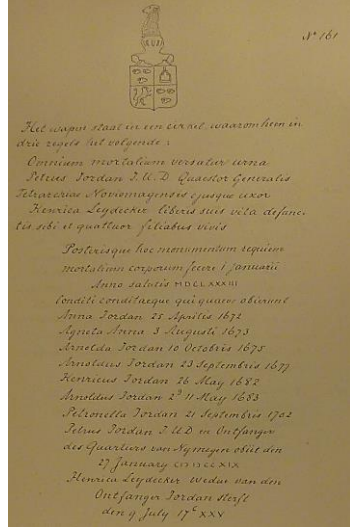 No 161
Het wapen staat in een cirkel, waaromheen in
drie regels het volgende:
Omnium mortalium versatur urna
Petrus Jordan J.U.D. Quaestor Generalis
Tetrarchiae Noviomagensis ejusque uxor
Henrica Leydecker liberis suis vita defunc-
tis sibi et quattuor filiabus vivis
Posterisque hoc monumentum requiem
mortalium corporum fecere 1 januarii
Anno salutis MDCLXXXIII
Conditi conditaeque qui quaeve obierunt
Anna Jordan 25 Aprilis 1672
Agneta Anna 3 Augusti 1673
Arnolda Jordan 10 Octobris 1675
Arnoldus Jordan 23 Septembris 1677
Henricus Jordan 26 May 1682
Arnoldus Jordan 2s 11 May 1683
Petronella Jordan 21 Septembris 1702
Petrus Jordan J.U.D en Ontfanger
des Quartiers van Nymegen obiit den
27 January CIƆIƆCCXIX
Henrica Leydecker Wedue van den
Ontfanger Jordan sterft
den 9 July 17c XXV